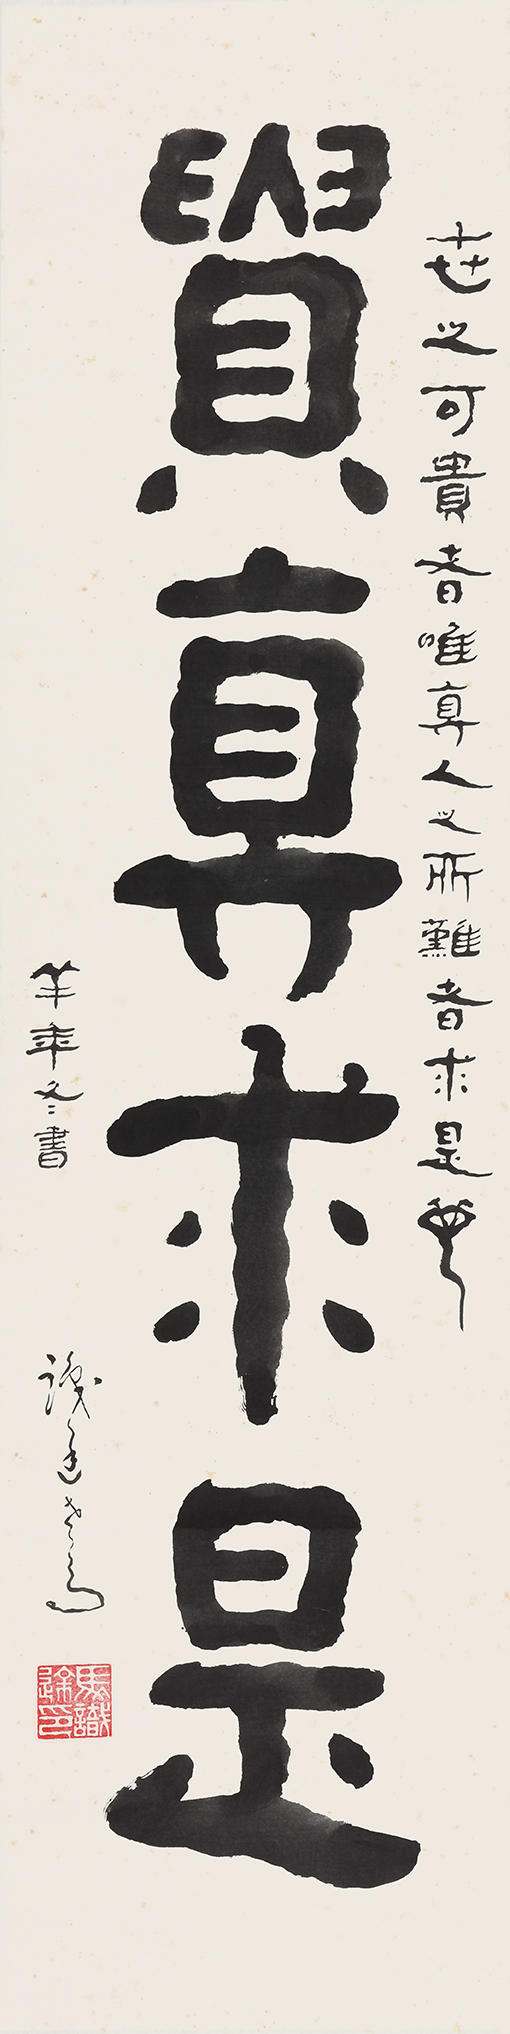 世之可貴者唯真人之所難者求是
貴真求是
羊年冬書
識途老馬
馬識途印